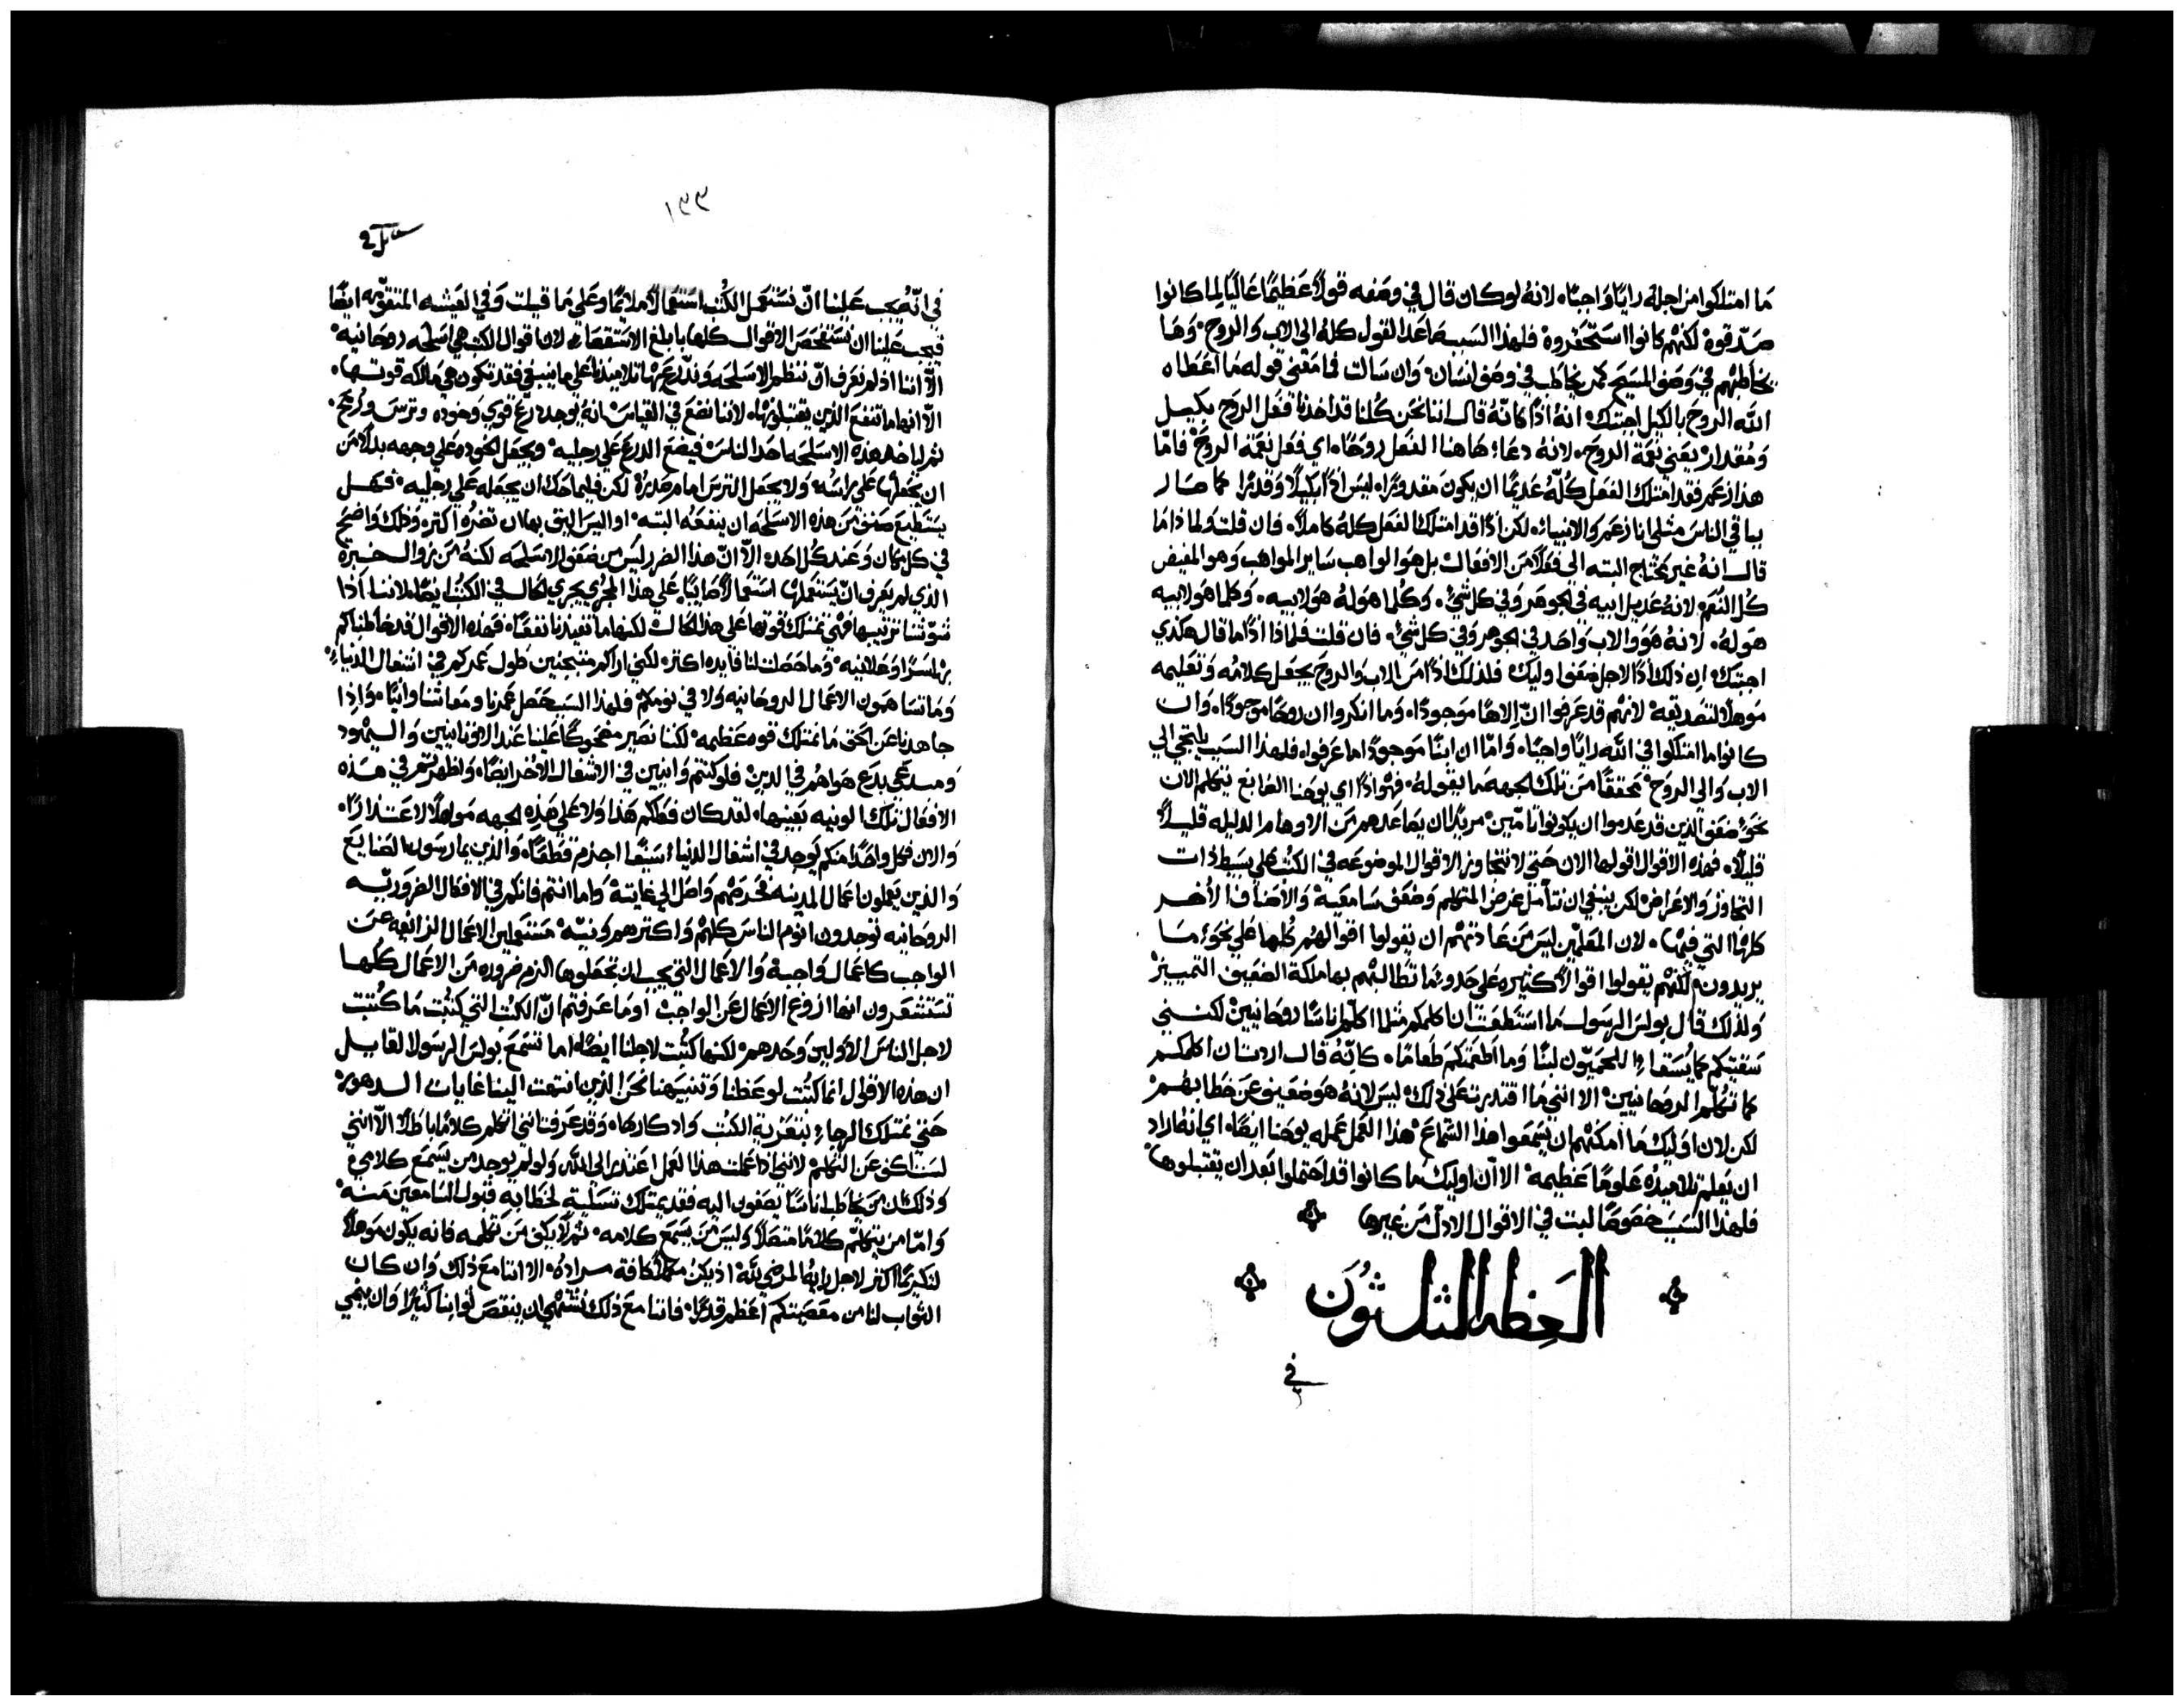 ما امتلكوا من اجله رايًا واجبًا، لانهُ لو كان قال في وصفه قولاً عظيمًا عاليًا لما كانوا
صدّقوهُ لكنّهم كانوا استحقروهُ فلهذا السبب صاعد القول كله الى الاب والروح، وها
يخاطبهم في وصف المسيح كمن يخاطب في وصف انسان، وان سالت فما معنى قوله ما اعطاه
الله الروح بالكيل اجبتك، انهُ اذًا كانّهُ قال اننا نحن كلنا قد اخذنا فعل الروح بكيل
ومقدار يعني نعمة الروح، لانهُ دعا هاهنا الفعل روحًا، اي فعل نعمة الروح، فامّا
هذا زعم فقد امتلك الفعل كلّه عديمًا ان يكون مقدورًا، ليس اذًا بكيلاً وقدرًا كما صار
بباقي الناس مثلي انا زعم والانبياء، لكن اذًا قد امتلك الفعل كله كاملاً، فان قلت ولماذا ما
قال انهُ غير محتاج البته الى فعلاً من الافعال بل هو الواهب ساير المواهب وهو المفيض
كل النعم، لانهُ عديل ابيه في الجوهر وفي كل شيء، وكلما هو لهُ هو لابيه، وكلما هو لابيه
هو لهُ، لانهُ هو والاب واحد في الجوهر وفي كل شيء، فان قلت فلماذا اذًا ما قال هكذي
اجبتك، ان ذلك اذًا لاجل ضعف اوليك، فلذلك اذًا من الاب والروح يجعل كلامه وتعليمه
موهلاً لتصديقه لانهم قد عرفوا انّ الاهًا موجودًا، وما انكروا ان روحًا موجودًا، وان
كانوا ما امتلكوا في الله رايًا واجبًا، وامّا ان ابنًا موجودًا ما عرفوا، فلهذا السبب يلتجي الي
الاب والي الروح محققًا من تلك الجهه ما يقولهُ، فهو اذًا اي يوحنا الصابغ يتكلم الان
نحو ضعف الذين قد عدموا ان يكونوا تامّين، مريدًا ان يصاعدهم من الاوهام الدليله قليلاً
قليلاً، فهذه الاقوال اقولها الان حتي لا نتجاوز الاقوال الموضوعه في الكتب علي بسيط ذات
التجاوز والاعراض لكن ينبغي ان نتأمل غرض المتكلم وضعف سامعيه والاصناف الأخر
كلها التي فيها، لان المعلّمين ليس من عادتهم ان يقولوا اقوالهم كلها علي نحو ما
يريدون، لكنهم يقولوا اقوالاً كثيره علي حدو ما تطالبهم بها ملكة الضعيف التمييز
ولذلك قال بولس الرسول ما استطعت ان اكلمكم مثلما اكلّم اناسًا روحانيين لكنني
سقيتكم كما يُسقاء اللحميّون لبنًا وما اطعمتكم طعامًا، كانّهُ قال اردت ان اكلمكم
كما تكلم الروحانيين، الا انني ما اقتدرت علي ذلك، ليس لانه هو ضعيف عن خطابهم
لكن لان اوليك ما امكنهم ان يسمعوا هذا السماع، هذا العمل عمله يوحنا ايضًا، اي انهُ اراد
ان يعلم تلاميذهُ علومًا عظيمه، الا ان اوليك ما كانوا قد احتملوا بعد ان يقتبلوها
فلهذا السبب خصوصًا لبت في الاقوال الادل من غيرها
العظه الثلثون
في
١٣٣
في انّهُ يجب علينا انّ نستعمل الكتب استعمالاً ملايمًا وعلى ما قيلت وفي العيشه المتقومه ايضًا
فيجب علينا ان نستفحص الاقوال كلها بابلغ الاستقصاء، لان اقوال الكتب هي اسلحه روحانيه
الاّ اننا اذا لم نعرف انّ ننظم الاسلحه وندرّع بها تلاميذنا علي ما ينبغي فقد تكون هي مالكه قوتها،
الاّ انها ما تنفع الذين يقتبلونها، لأننا نضع في القياس انهُ يوجد درع قوي وخوذه وترس ورمح،
ثم لياخذ هذه الاسلحه احد الناس فيضع الدرع علي رجليه، ويجعل الخوذه علي وجهه بدلاً من
ان يجعلها علي راسه، ولا يجعل الترس امام صدره، لكن فليماحك ان يجعله علي رجليه، فهل
يستطيع صنف من هذه الاسلحه ان ينفعهُ البته، او اليس اليق بها ان تضرهُ اكثر، وذلك واضح
في كل مكان وعند كل احد، الاّ انّ هذا الضرر ليس من ضعف الاسلحه لكنهُ من زوال خبرة
الذي لم يعرف انّ يستعملها استعمالاً صايبًا، علي هذا المجرى يجري الحال في الكتب ايضًا، لاننا اذا
شوّشنا ترتيبها فهي تمتلك قوتها علي هذا الحال، لكنها ما تفيدنا نفعًا، فهذه الاقوال قد خاطبناكم
بها سرًا وعلانيه، وما حصلت لنا فايده اكثر، لكني اراكم منتحبين طول عمركم في اشغال الدنيا،
وما تساهمون الاعمال الروحانيه ولا في نومكم، فلهذا السبب حصل عمرنا ومعاشنا وانيًا، واذا
جاهدنا عن الحق ما نمتلك قوه عظيمه، لكننا نصير مضحوكًا علينا عند الاوثانيين واليهود
ومبدعي بدع هواهم في الدين، فلو كنتم وانيين في الاشغال الأخر ايضًا، واظهرتم في هذه
الافعال تلك الونيه بعينها، لقد كان فعلكم هذا ولا علي هذه الجهه موهلاً لاعتذارًا،
والان فكل واحدًا منكم يوجد في اشغال الدنيا، سيفًا اجذم قطعًا، والذين يمارسون الصنايع
والذين يعملون اعمال المدينه فحرصهم واصل الي غايته، واما انتم فانكم في الافعال الضروريه
الروحانيه توجدون انوم الناس كلهم واكثرهم ونيّة، مستعملين الاعمال الزائغه عن
الواجب كاعمال واجبه، والاعمال التي يجب ان تجعلوها الزم ضروره من الاعمال كلها
تستشعرون انها اروغ الاعمال عن الواجب، اوما عرفتم انّ الكتب التي كتبت ما كُتبت
لاجل الناس الأولين وحدهم، لكنها كتبت لاجلنا ايضًا، اما تسمع بولس الرسول القايل
ان هذه الاقوال انما كتبت لوعظنا وتنبيهنا نحن الذين انتهت الينا غايات الدهور،
حتي نمتلك الرجاء بتعزية الكتب واد كارها، وقد عرفت انني اتكلم كلامًا باطلاً، الاّ انني
لست اكف عن التكلم، لانني اذا عملت هذا العمل اعتذر الي الله، ولو لم يوجد من يسمع كلامي
وذلك ان من يخاطب اناسًا يصغون اليه فقد يمتلك تسلية لخطابه قبول السامعين منه،
وامّا من يتكلم كلامًا متصلاً وليس من يسمع كلامه، ثم لا يكف من تكلمه فانه يكون موهلاً
لتكريمًا اكثر لاجل رايهُ المرضي لله، اذ يكن مكملاً كافة مرادهُ، الا اننا مع ذلك وان كان
الثواب لنا من معصيتكم اعظم قدرًا، فاننا مع ذلك نشتهي ان ينقص ثوابنا كثيرًا وان ينمي